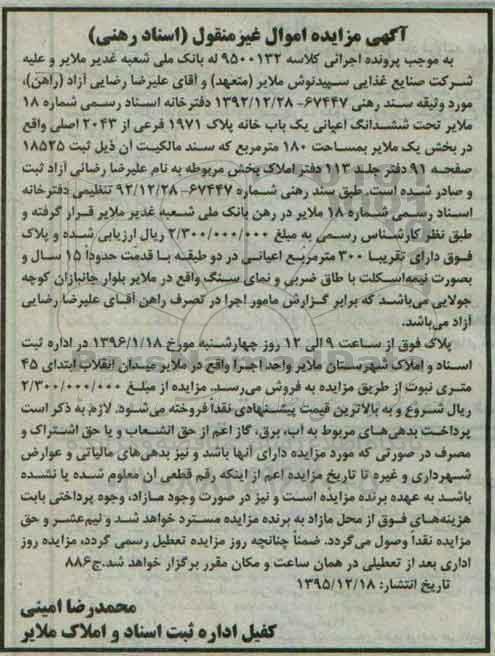 آگهی مزایده اموال غیرمنقول (اسناد رهنی)
به موجب پرونده اجرائی کلاسه ۹۵۰۰۱۳۲ له بانک ملی شعبه غدیر ملایر و علیه
شرکت صنایع غذایی سپیدنوش ملایر (متعهد) و آقای علیرضا رضایی آزاد (راهن)،
مورد وثیقه سند رهنی ۶۷۴۴۷- ۱۳۹۲/۱۲/۲۸ دفترخانه اسناد رسمی شماره ۱۸
ملایر تحت ششدانگ اعیانی یک باب خانه پلاک ۱۹۷۱ فرعی از ۲۰۴۳ اصلی واقع
در بخش یک ملایر بمساحت ۱۸۰ مترمربع که سند مالکیت آن ذیل ثبت ۱۸۵۲۵
صفحه ۹۱ دفتر جلد ۱۱۳ دفتر املاک بخش مربوطه به نام علیرضا رضائی آزاد ثبت
و صادر شده است. طبق سند رهنی شماره ۶۷۴۴۷- ۹۲/۱۲/۲۸ تنظیمی دفترخانه
اسناد رسمی شماره ۱۸ ملایر در رهن بانک ملی شعبه غدیر ملایر قرار گرفته و
طبق نظر کارشناس رسمی به مبلغ ۲/۳۰۰/۰۰۰/۰۰۰ ریال ارزیابی شده و پلاک
فوق دارای تقریبا ۳۰۰ مترمربع اعیانی در دو طبقه با قدمت حدودا ۱۵ سال و
بصورت نیمه‌اسکلت با طاق ضربی و نمای سنگ واقع در ملایر بلوار جانبازان کوچه
جولایی می‌باشد که برابر گزارش مامور اجرا در تصرف راهن آقای علیرضا رضایی
آزاد می‌باشد.
پلاک فوق از ساعت ۹ الی ۱۲ روز چهارشنبه مورخ ۱۳۹۶/۱/۱۸ در اداره ثبت
اسناد و املاک شهرستان ملایر واحد اجرا واقع در ملایر میدان انقلاب ابتدای ۴۵
متری نبوت از طریق مزایده به فروش می‌رسد. مزایده از مبلغ ۲/۳۰۰/۰۰۰/۰۰۰
ریال شروع و به بالاترین قیمت پیشنهادی نقدا فروخته می‌شود. لازم به ذکر است
پرداخت بدهی‌های مربوط به آب، برق، گاز اعم از حق انشعاب و یا حق اشتراک و
مصرف در صورتی که مورد مزایده دارای آنها باشد و نیز بدهی‌های مالیاتی و عوارض
شهرداری و غیره تا تاریخ مزایده اعم از اینکه رقم قطعی آن معلوم شده یا نشده
باشد به عهده برنده مزایده است و نیز در صورت وجود مازاد، وجوه پرداختی بابت
هزینه‌های فوق از محل مازاد به برنده مزایده مسترد خواهد شد و نیم‌عشر و حق
مزایده نقدا وصول می‌گردد. ضمنا چنانچه روز مزایده تعطیل رسمی گردد، مزایده روز
اداری بعد از تعطیلی در همان ساعت و مکان مقرر برگزار خواهد شد.ج۸۸۶
تاریخ انتشار: ۱۳۹۵/۱۲/۱۸
محمدرضا امینی
کفیل اداره ثبت اسناد و املاک ملایر